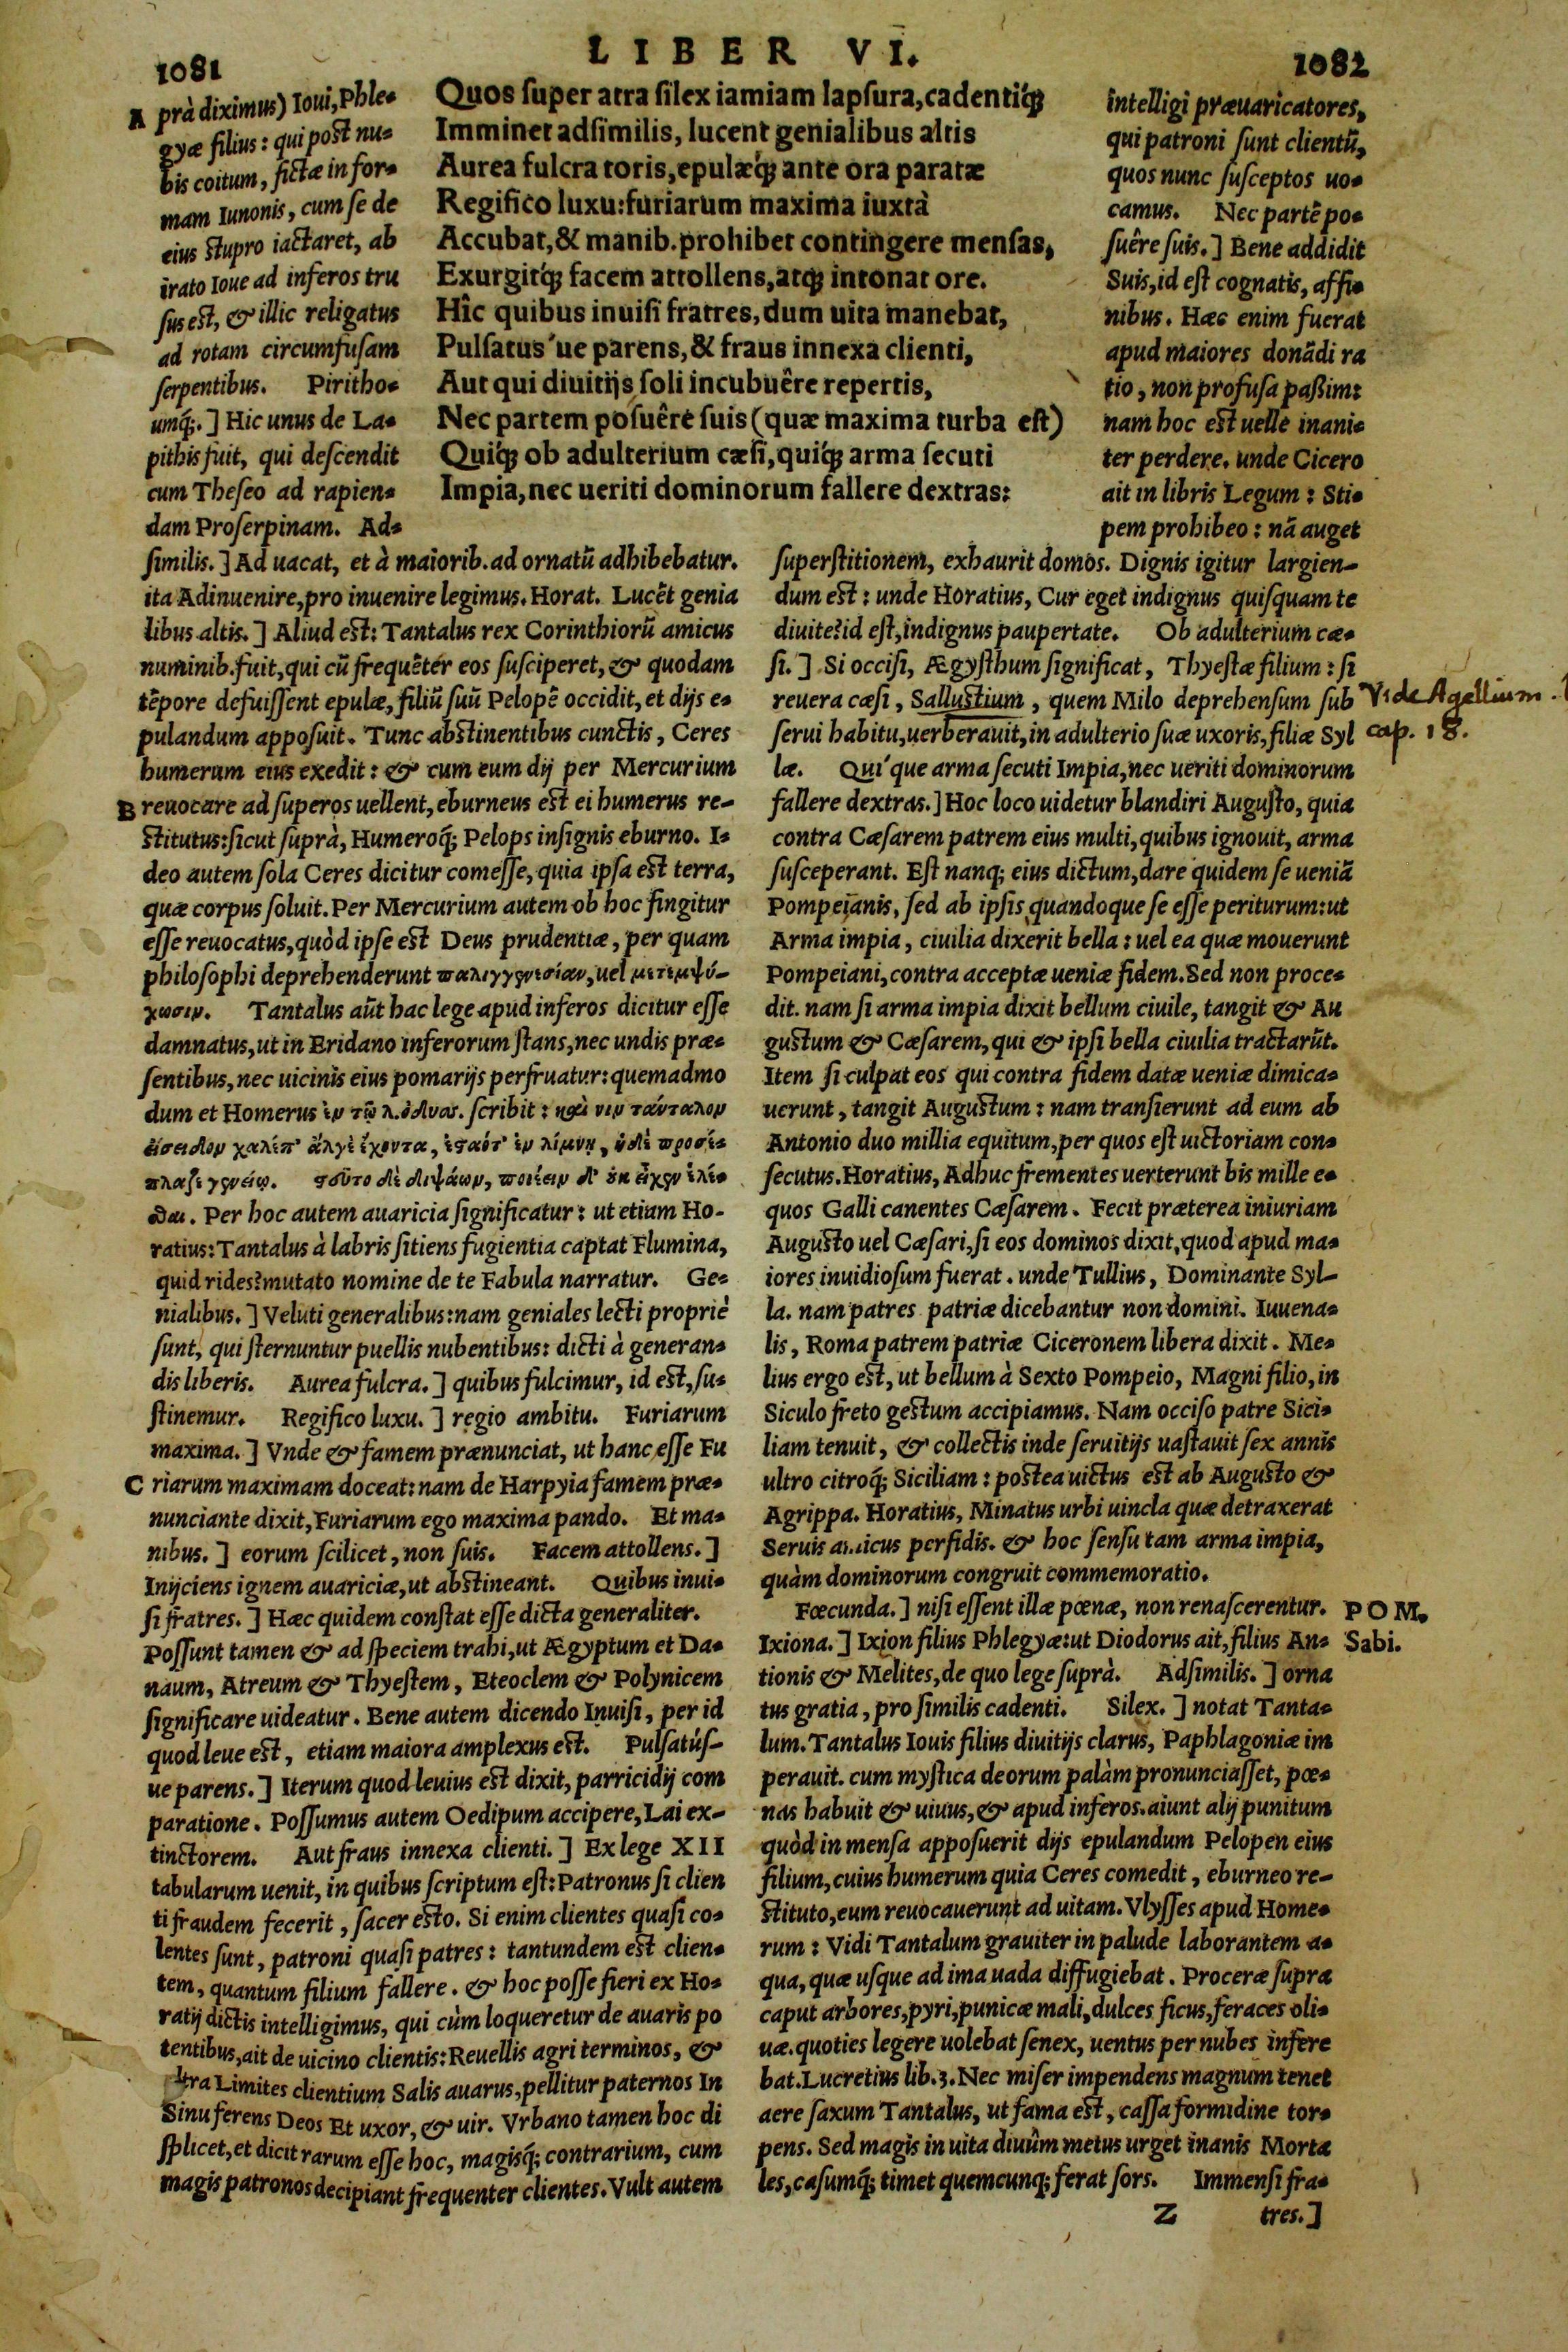 1081
LIBER VI.
1082
Quos ſuper atra ſilex iamiam lapſura, cadentiq́ꝫ
Imminet adſimilis, lucent genialibus altis
Aurea fulcra toris, epulæq́ꝫ ante ora paratæ
Regifico luxu: furiarum maxima iuxtà
Accubat, & manib. prohibet contingere menſas,
Exurgitq́ꝫ facem attollens, atqꝫ intonat ore.
Hîc quibus inuiſi fratres, dum uita manebat,
Pulſatus'ue parens, & fraus innexa clienti,
Aut qui diuitijs ſoli incubuêre repertis,
Nec partem poſuêre ſuis (quæ maxima turba eſt)
Quiq́ꝫ ob adulterium cæſi, quiq́ꝫ arma ſecuti
Impia, nec ueriti dominorum fallere dextras:
A prà diximus) Ioui, Phle-
gyæ filius: qui poſt nu-
bis coitum, fictæ in for-
mam Iunonis, cum ſe de
eius ſtupro iactaret, ab
irato Ioue ad inferos tru
ſus eſt, & illic religatus
ad rotam circumfuſam
ſerpentibus. Piritho-
umq́;.] Hic unus de La-
pithis fuit, qui deſcendit
cum Theſeo ad rapien-
dam Proſerpinam. Ad-
ſimilis.] Ad uacat, et à maiorib. ad ornatũ adhibebatur.
ita Adinuenire, pro inuenire legimus. Horat. Lucẽt genia
libus altis.] Aliud eſt: Tantalus rex Corinthiorũ amicus
numinib. fuit, qui cũ frequẽter eos ſuſciperet, & quodam
tẽpore defuiſſent epulæ, filiũ ſuũ Pelopẽ occidit, et dijs e-
pulandum appoſuit. Tunc abſtinentibus cunctis, Ceres
humerum eius exedit: & cum eum dij per Mercurium
B reuocare ad ſuperos uellent, eburneus eſt ei humerus re-
ſtitutus: ſicut ſuprà, Humeroq́; Pelops inſignis eburno. I-
deo autem ſola Ceres dicitur comeſſe, quia ipſa eſt terra,
quæ corpus ſoluit. Per Mercurium autem ob hoc fingitur
eſſe reuocatus, quòd ipſe eſt Deus prudentiæ, per quam
philoſophi deprehenderunt παλιγγενεσίαν, uel μετεμψύ-
χωσιν. Tantalus aũt hac lege apud inferos dicitur eſſe
damnatus, ut in Eridano inferorum ſtans, nec undis præ-
ſentibus, nec uicinis eius pomarijs perfruatur: quemadmo
dum et Homerus ἐν τῷ λ. ὀδυσσ. ſcribit: καὶ νιν τάνταλον
εἴσειδον χαλέπ' ἄλγε ἔχοντα, ἑσταότ' ἐν λίμνῃ, ἡ δὲ προσέ-
πλαζε γενείῳ. στεῦτο δὲ διψάων, ποιέειν δ' ὀκ εἶχεν ἑλέ-
σθαι. Per hoc autem auaricia ſignificatur: ut etiam Ho-
ratius: Tantalus à labris ſitiens fugientia captat Flumina,
quid rides? mutato nomine de te Fabula narratur. Ge-
nialibus.] Veluti generalibus: nam geniales lecti propriè
ſunt, qui ſternuntur puellis nubentibus: dicti à generan-
dis liberis. Aurea fulcra.] quibus fulcimur, id eſt, ſu-
ſtinemur. Regifico luxu.] regio ambitu. Furiarum
maxima.] Vnde & famem prænunciat, ut hanc eſſe Fu
C riarum maximam doceat: nam de Harpyia famem præ-
nunciante dixit, Furiarum ego maxima pando. Et ma-
nibus.] eorum ſcilicet, non ſuis. Facem attollens.]
Inijciens ignem auariciæ, ut abſtineant. Quibus inui-
ſi fratres.] Hæc quidem conſtat eſſe dicta generaliter.
Poſſunt tamen & ad ſpeciem trahi, ut Ægyptum et Da-
naum, Atreum & Thyeſtem, Eteoclem & Polynicem
ſignificare uideatur. Bene autem dicendo Inuiſi, per id
quod leue eſt, etiam maiora amplexus eſt. Pulſatúſ-
ue parens.] Iterum quod leuius eſt dixit, parricidij com
paratione. Poſſumus autem Oedipum accipere, Lai ex-
tinctorem. Aut fraus innexa clienti.] Ex lege XII
tabularum uenit, in quibus ſcriptum eſt: Patronus ſi clien
ti fraudem fecerit, ſacer eſto. Si enim clientes quaſi co-
lentes ſunt, patroni quaſi patres: tantundem eſt clien-
tem, quantum filium fallere. & hoc poſſe fieri ex Ho-
ratij dictis intelligimus, qui cùm loqueretur de auaris po
tentibus, ait de uicino clientis: Reuellis agri terminos, &
ltra Limites clientium Salis auarus, pellitur paternos In
Sinu ferens Deos Et uxor, & uir. Vrbano tamen hoc di
ſplicet, et dicit rarum eſſe hoc, magisq́; contrarium, cum
magis patronos decipiant frequenter clientes. Vult autem
intelligi præuaricatores,
qui patroni ſunt clientũ,
quos nunc ſuſceptos uo-
camus. Nec partẽ po-
ſuêre ſuis.] Bene addidit
Suis, id eſt cognatis, affi-
nibus. Hæc enim fuerat
apud maiores donãdi ra
tio, non profuſa paßim:
nam hoc eſt uelle inani-
ter perdere. unde Cicero
ait in libris Legum: Sti-
pem prohibeo: nã auget
ſuperſtitionem, exhaurit domos. Dignis igitur largien-
dum eſt: unde Horatius, Cur eget indignus quiſquam te
diuite? id eſt, indignus paupertate. Ob adulterium cæ-
ſi.] Si occiſi, Ægyſthum ſignificat, Thyeſtæ filium: ſi
reuera cæſi, Salluſtium, quem Milo deprehenſum ſub
ſerui habitu, uerberauit, in adulterio ſuæ uxoris, filiæ Syl
læ. Qui'que arma ſecuti Impia, nec ueriti dominorum
fallere dextras.] Hoc loco uidetur blandiri Auguſto, quia
contra Cæſarem patrem eius multi, quibus ignouit, arma
ſuſceperant. Eſt nanq; eius dictum, dare quidem ſe ueniã
Pompeianis, ſed ab ipſis quandoque ſe eſſe periturum: ut
Arma impia, ciuilia dixerit bella: uel ea quæ mouerunt
Pompeiani, contra acceptæ ueniæ fidem. Sed non proce-
dit. nam ſi arma impia dixit bellum ciuile, tangit & Au
guſtum & Cæſarem, qui & ipſi bella ciuilia tractarũt.
Item ſi culpat eos qui contra fidem datæ ueniæ dimica-
uerunt, tangit Auguſtum: nam tranſierunt ad eum ab
Antonio duo millia equitum, per quos eſt uictoriam con-
ſecutus. Horatius, Adhuc frementes uerterunt bis mille e-
quos Galli canentes Cæſarem. Fecit præterea iniuriam
Auguſto uel Cæſari, ſi eos dominos dixit, quod apud ma-
iores inuidioſum fuerat. unde Tullius, Dominante Syl-
la. nam patres patriæ dicebantur non domini. Iuuena-
lis, Roma patrem patriæ Ciceronem libera dixit. Me-
lius ergo eſt, ut bellum à Sexto Pompeio, Magni filio, in
Siculo freto geſtum accipiamus. Nam occiſo patre Sici-
liam tenuit, & collectis inde ſeruitijs uaſtauit ſex annis
ultro citroq́; Siciliam: poſtea uictus eſt ab Auguſto &
Agrippa. Horatius, Minatus urbi uincla quæ detraxerat
Seruis amicus perfidis. & hoc ſenſu tam arma impia,
quàm dominorum congruit commemoratio.
Fœcunda.] niſi eſſent illæ pœnæ, non renaſcerentur.
Ixiona.] Ixion filius Phlegyæ: ut Diodorus ait, filius An-
tionis & Melites, de quo lege ſuprà. Adſimilis.] orna
tus gratia, pro ſimilis cadenti. Silex.] notat Tanta-
lum. Tantalus Iouis filius diuitijs clarus, Paphlagoniæ im
perauit. cum myſtica deorum palàm pronunciaſſet, pœ-
nas habuit & uiuus, & apud inferos. aiunt alij punitum
quòd in menſa appoſuerit dijs epulandum Pelopen eius
filium, cuius humerum quia Ceres comedit, eburneo re-
ſtituto, eum reuocauerunt ad uitam. Vlyſſes apud Home-
rum: Vidi Tantalum grauiter in palude laborantem a-
qua, quæ uſque ad ima uada diffugiebat. Proceræ ſupra
caput arbores, pyri, punicæ mali, dulces ficus, feraces oli-
uæ. quoties legere uolebat ſenex, uentus per nubes infere
bat. Lucretius lib. 3. Nec miſer impendens magnum tenet
aere ſaxum Tantalus, ut fama eſt, caſſa formidine tor-
pens. Sed magis in uita diuûm metus urget inanis Morta
les, caſumq́; timet quemcunq; ferat ſors. Immenſi fra-
Z tres.]
Vide Agellium.
cap. 18.
POM.
Sabi.